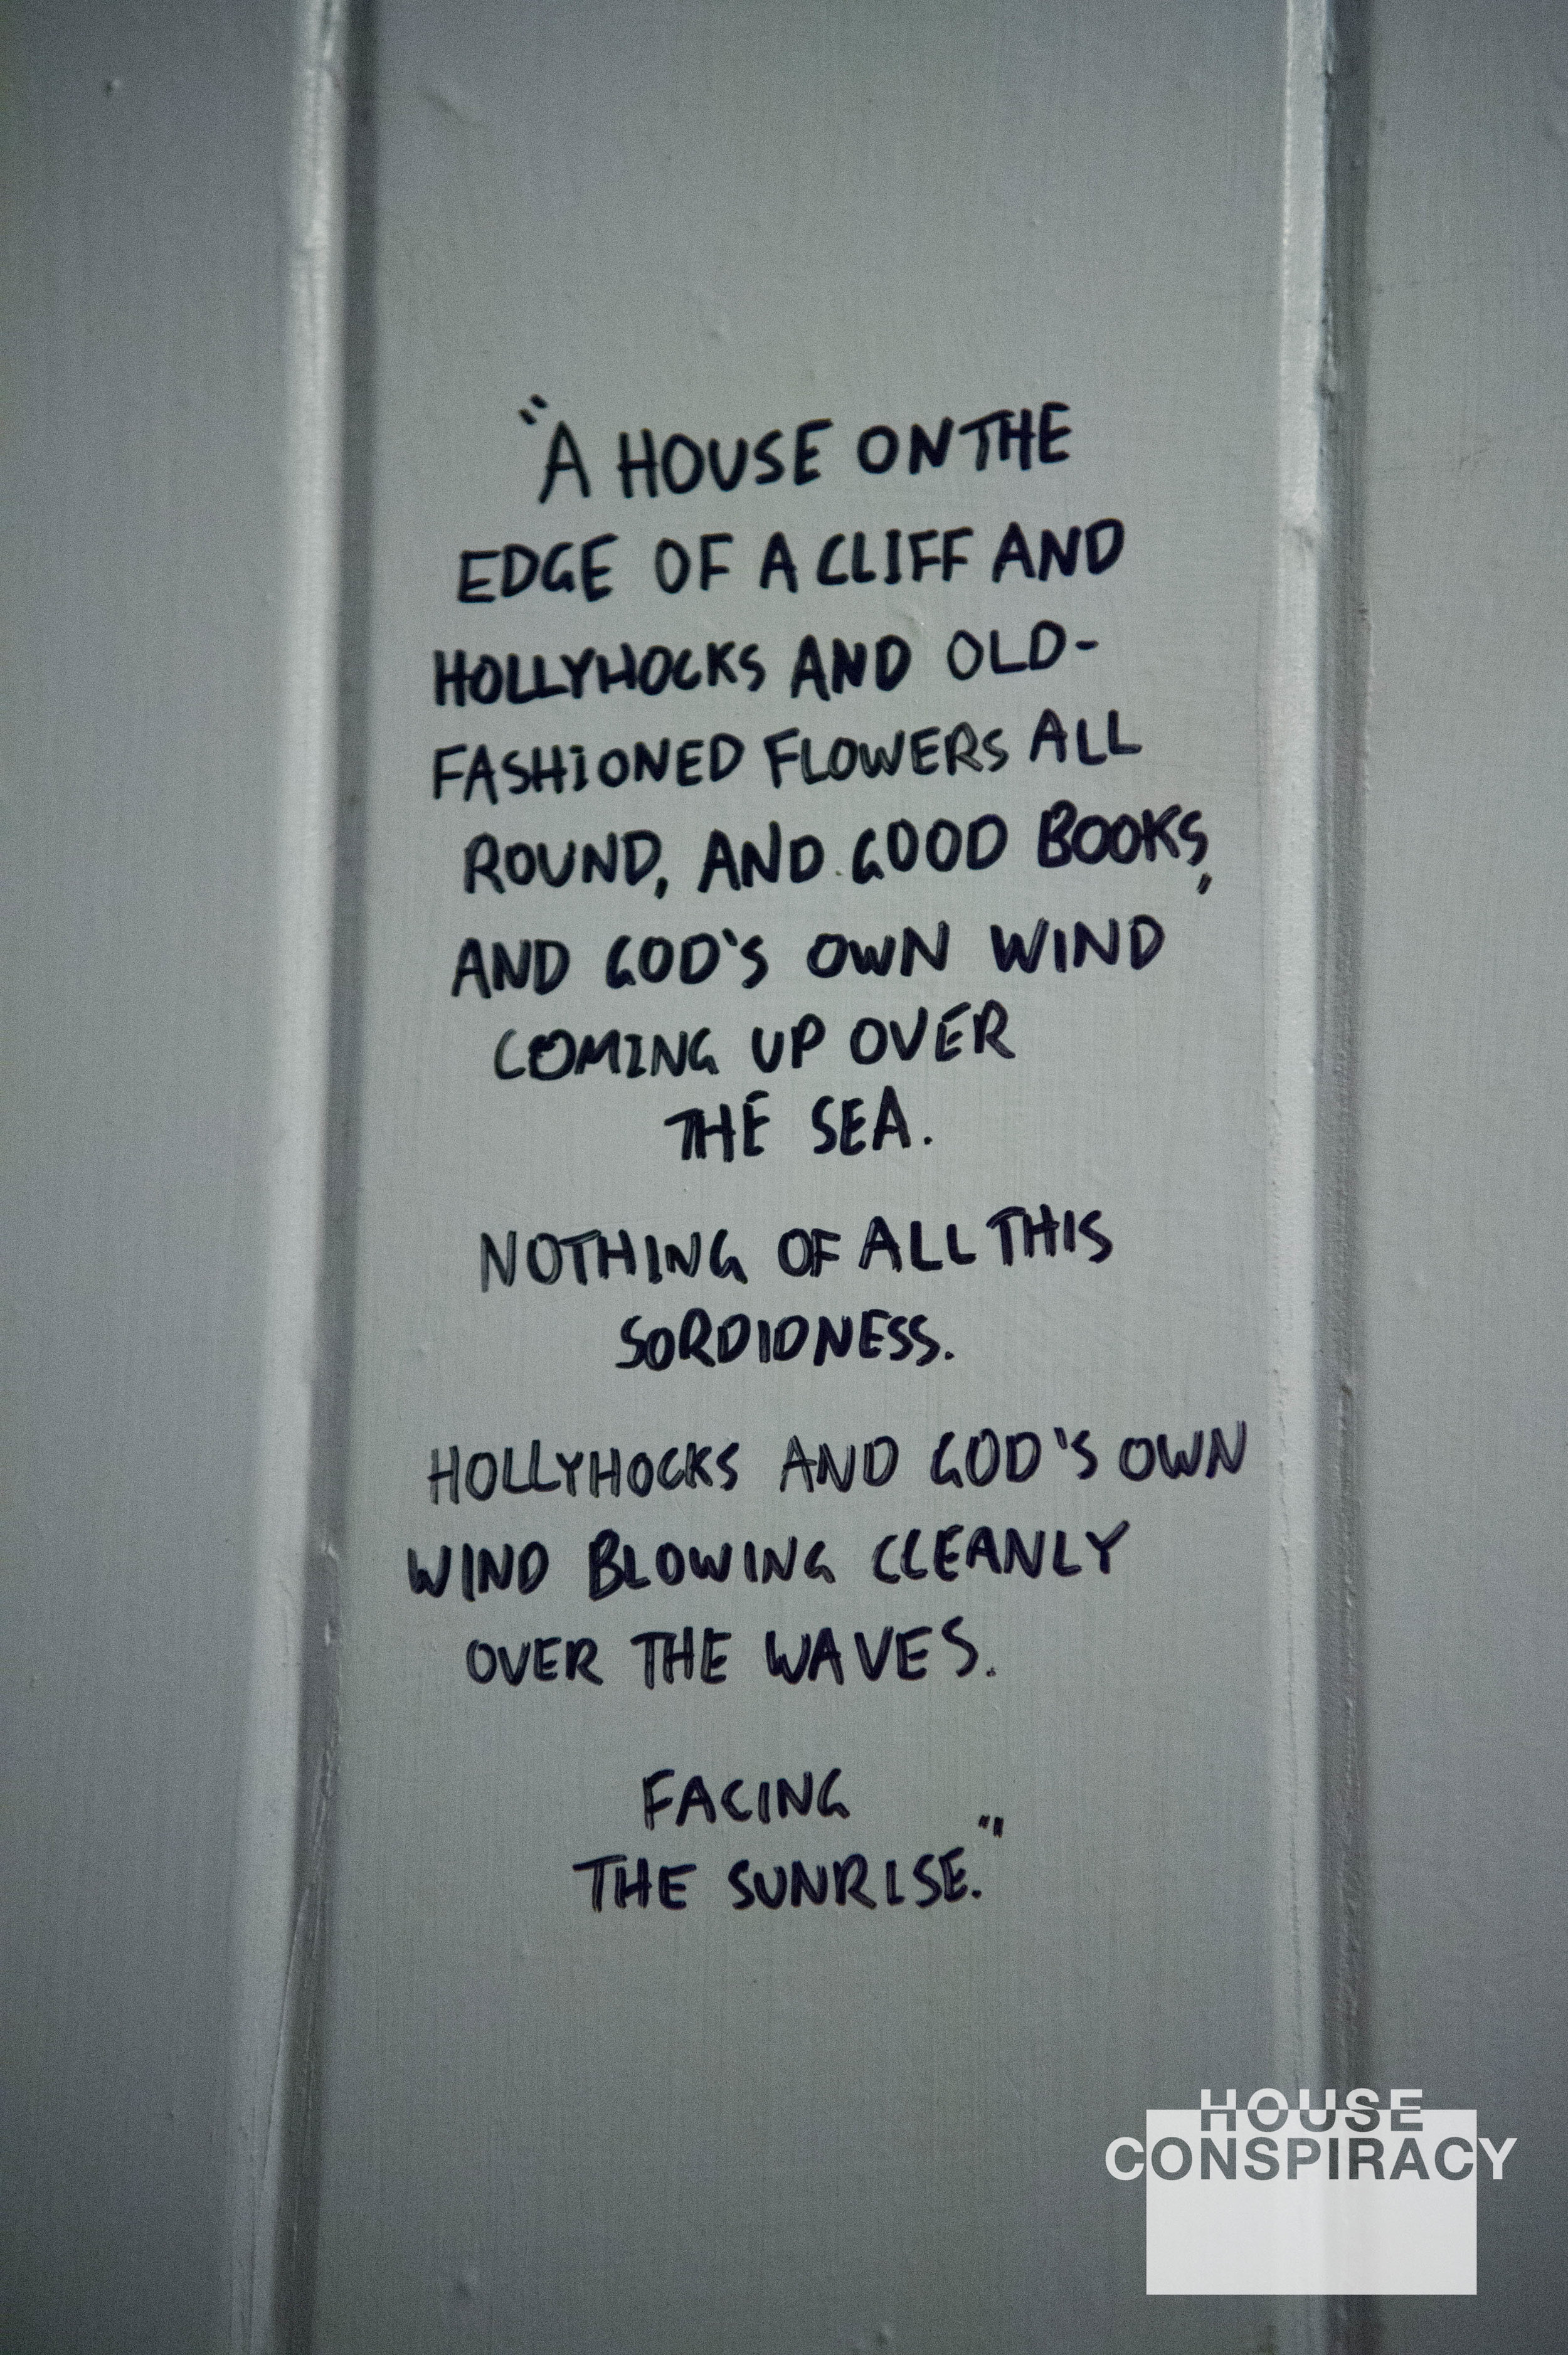 "A HOUSE ON THE
EDGE OF A CLIFF AND
HOLLYHOCKS AND OLD-
FASHIONED FLOWERS ALL
ROUND, AND GOOD BOOKS,
AND GOD'S OWN WIND
COMING UP OVER
THE SEA.
NOTHING OF ALL THIS
SORDIDNESS.
HOLLYHOCKS AND GOD'S OWN
WIND BLOWING CLEANLY
OVER THE WAVES.
FACING
THE SUNRISE."
HOUSE
CONSPIRACY